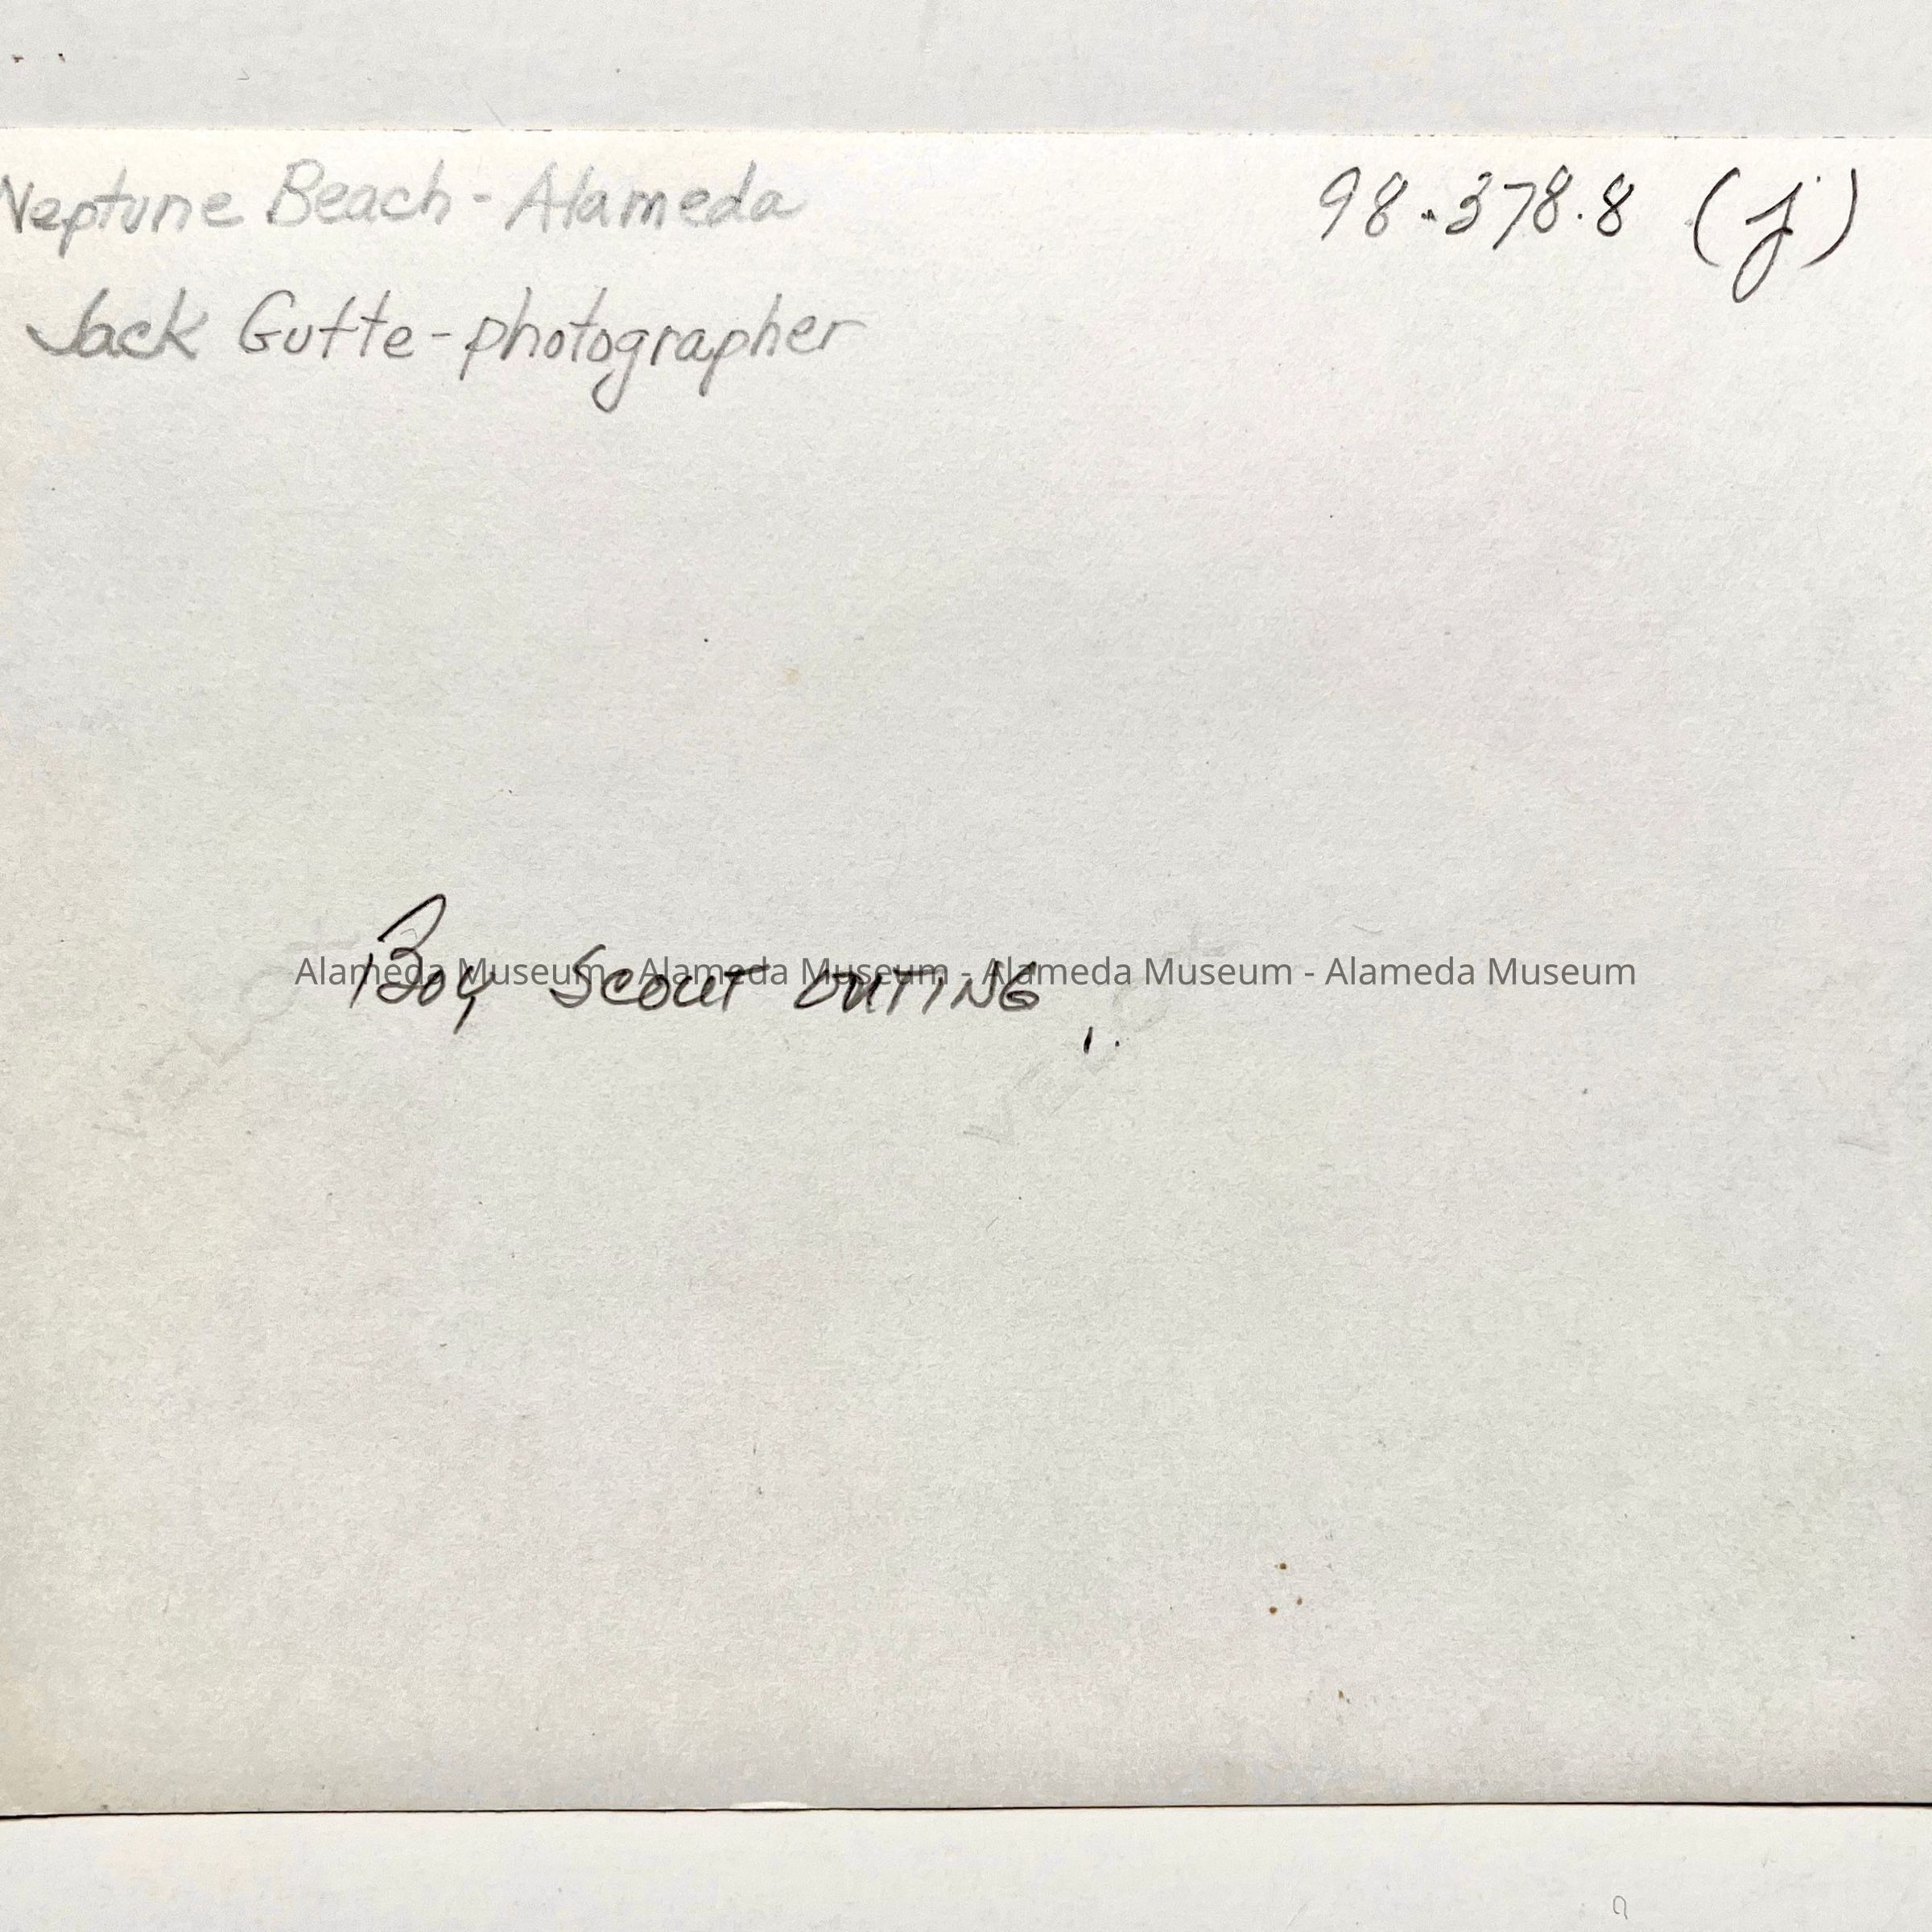 Neptune Beach - Alameda
98.378.8 (j)
Jack Gutte - photographer
Boy Scout OUTING
Alameda Museum - Alameda Museum - Alameda Museum - Alameda Museum
VELOX
VELOX